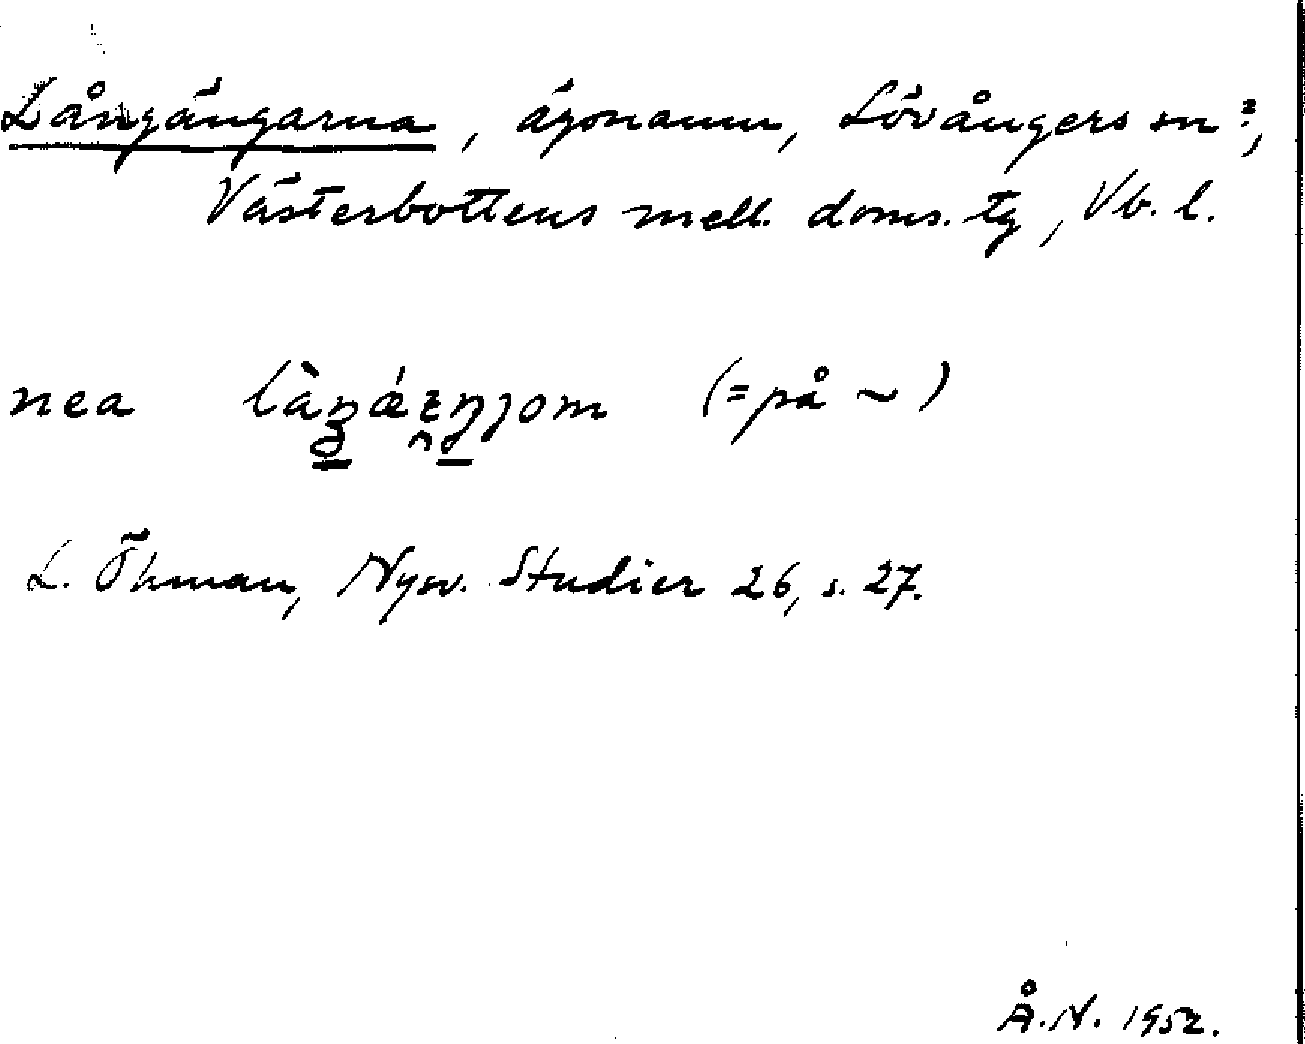 Långängarna, ägonamn, Lövångers sn?,
Västerbottens mell. doms. tg, Vb. l.
nea (= på ~)
L. Öhman, Nysv. Studier 26, s. 27.
Å.N. 1952.